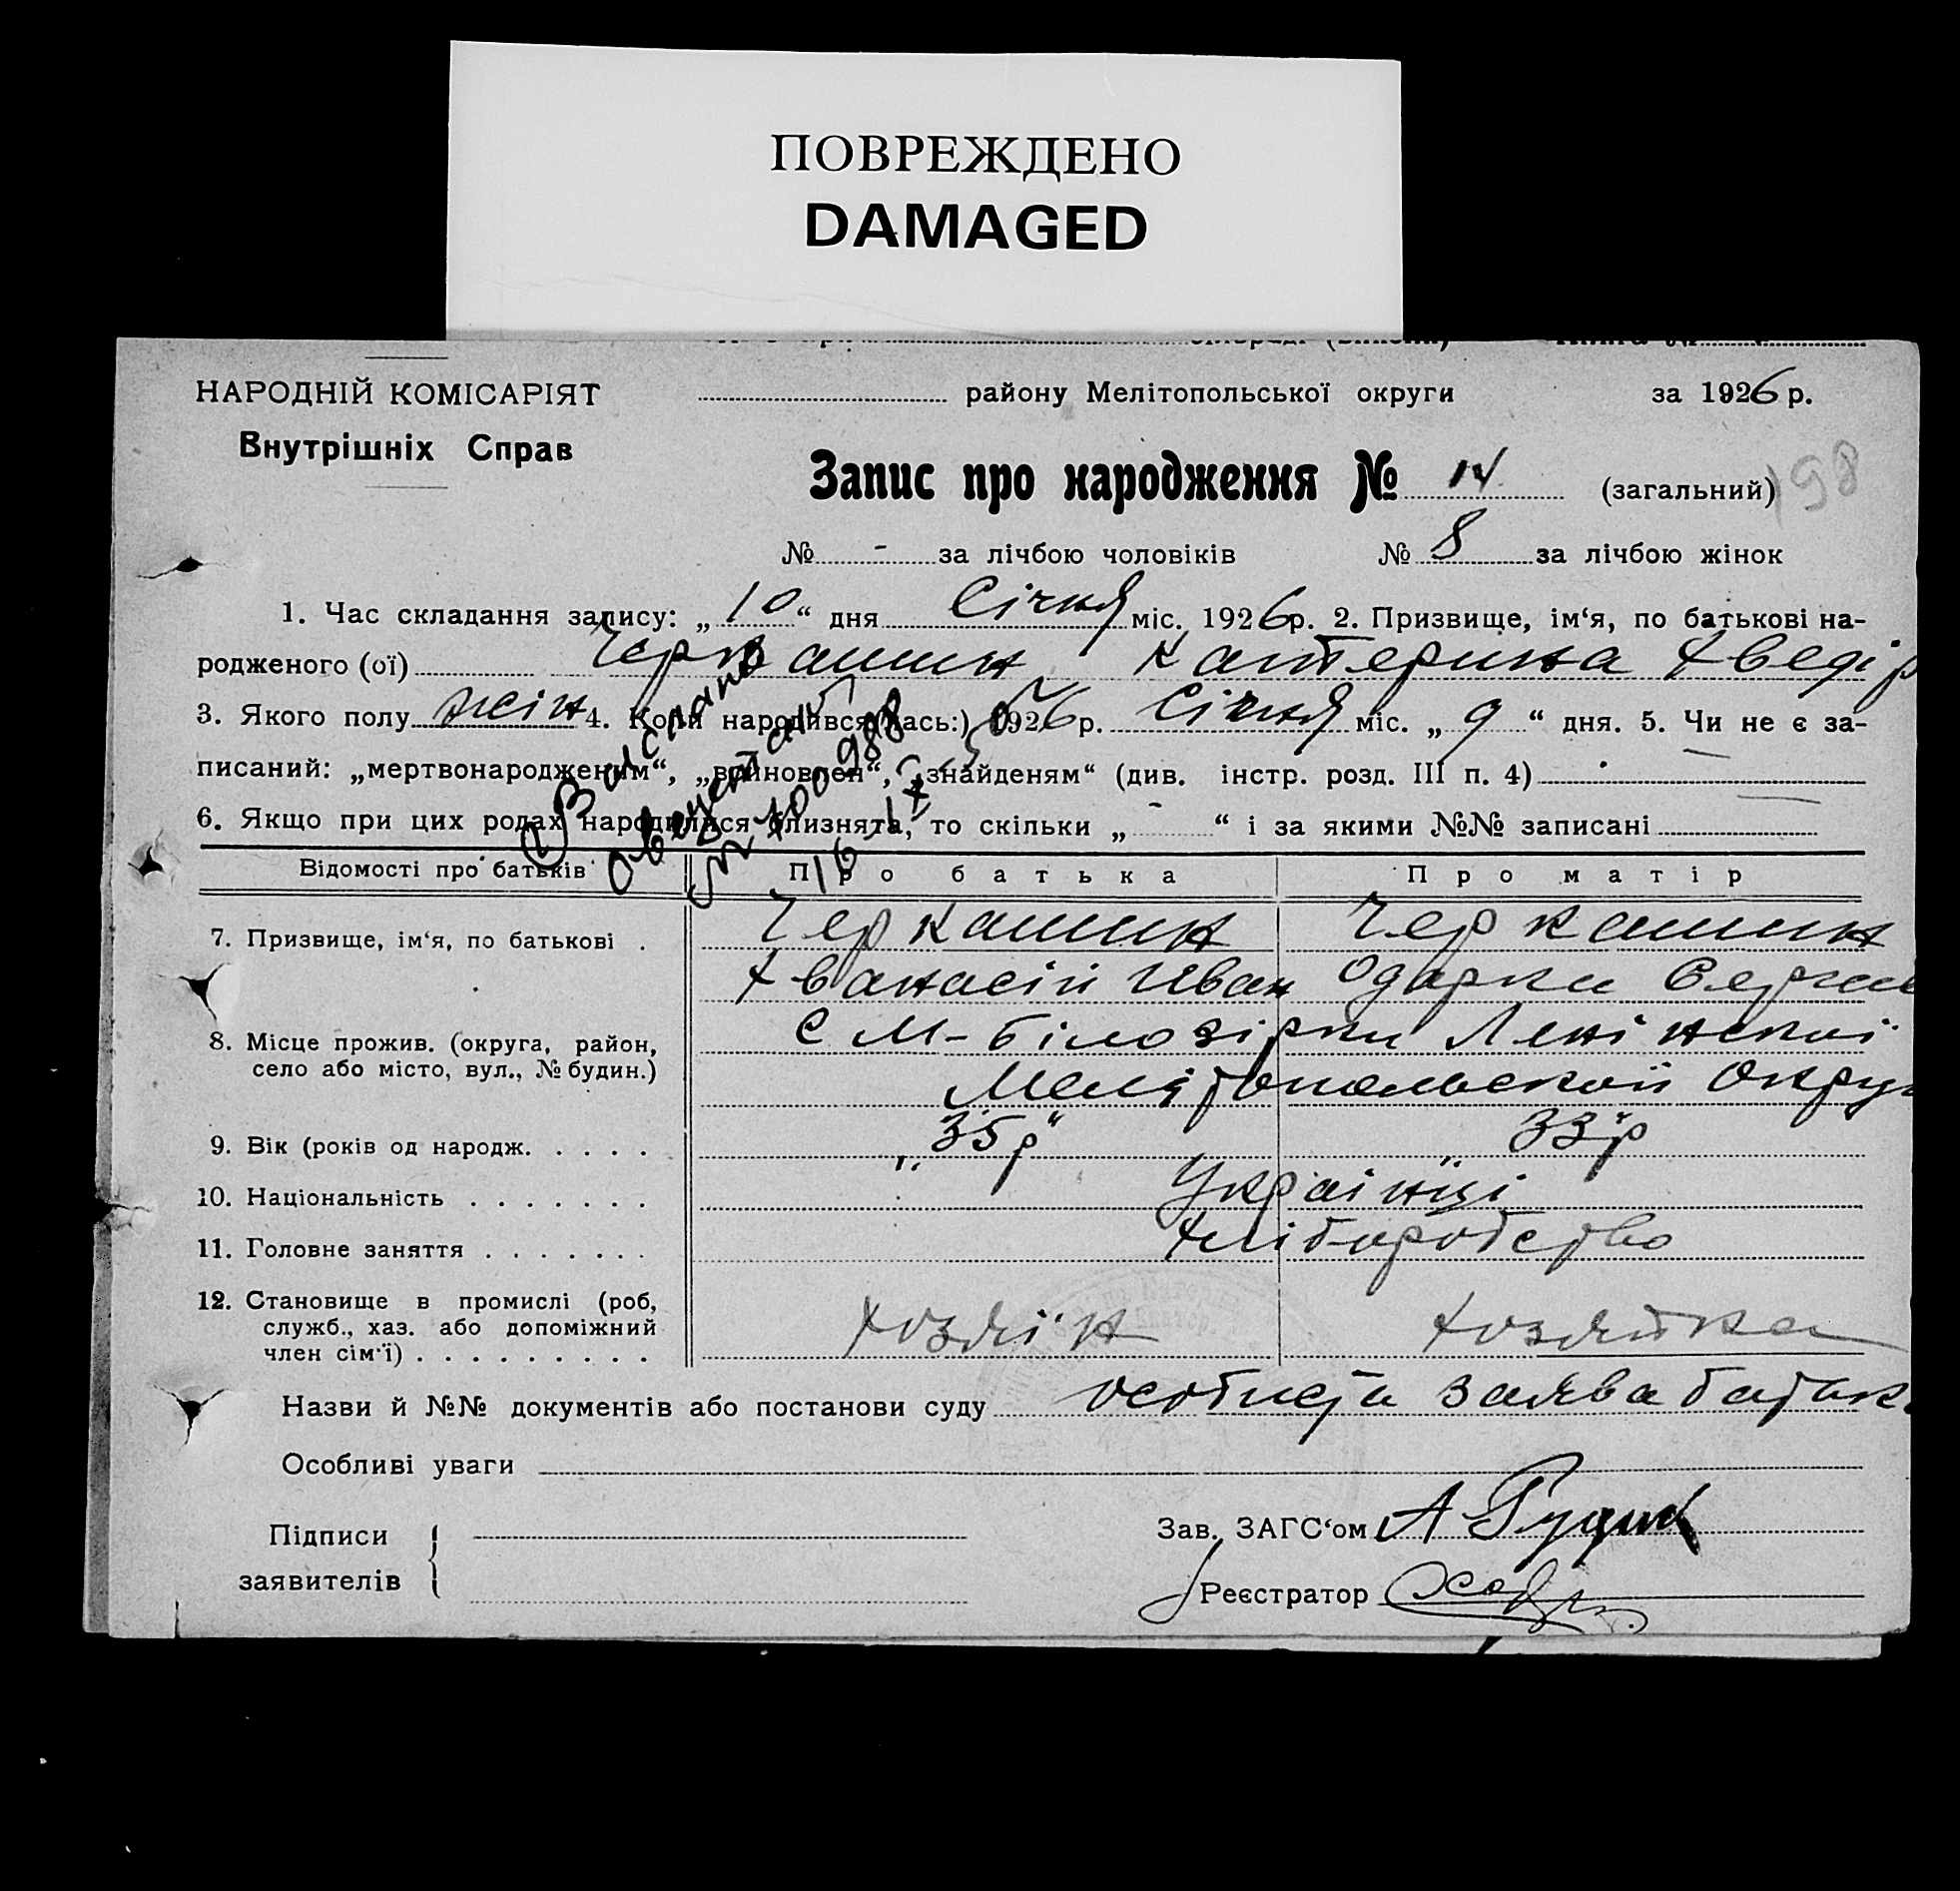 ПОВРЕЖДЕНО
DAMAGED
НАРОДНІЙ КОМІСАРІЯТ
Внутрішніх Справ
району Мелітопольської округи
за 1926 р.
Запис про народження № 14 (загальний)
198
№ - за лічбою чоловіків № 8 за лічбою жінок
1. Час складання запису: „10“ дня Січня міс. 1926р. 2. Призвище, ім‘я, по батькові на-
родженого (ої) Черкашин Катерина Хведір
3. Якого полу жін 4. Коли народився(лась:) 1926 р. Січня міс. „9“ дня. 5. Чи не є за-
писаний: „мертвонародженим“, „ “, „знайденям“ (див. інстр. розд. III п. 4)
6. Якщо при цих родах народилися близнята, то скільки „ - “ і за якими №№ записані
Відомості про батьків
Про батька
Про матір
7. Призвище, ім‘я, по батькові . Черкашин Черкашин
Хванасій Иван Одарки
8. Місце прожив. (округа, район, село або місто, вул., № будин.) С М-Білозірки
Округ
9. Вік (років од народж. . . . . „35р“ 33р
10. Національність . . . . . . . Українці
11. Головне заняття . . . . . . . Хліборобство
12. Становище в промислі (роб, служб., хаз. або допоміжний член сім‘ї) . . . . . . . . . Хозяїн Хозяйка
Назви й №№ документів або постанови суду заява батьк
Особливі уваги
Підписи заявителів
Зав. ЗАГС‘ом А
Реєстратор